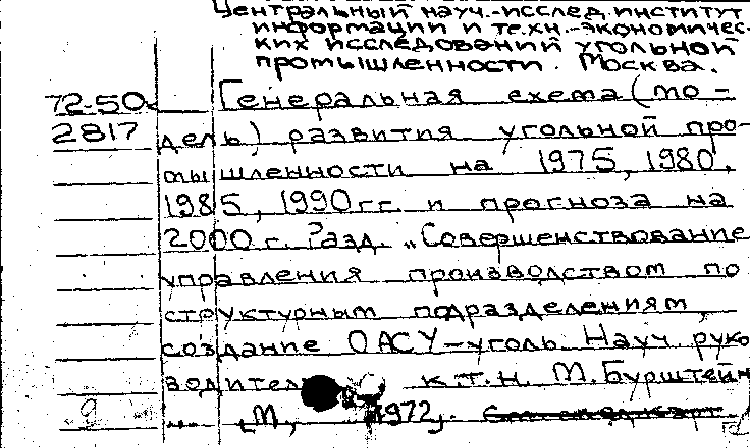 Центральный науч.-исслед. институт
информации и техн.-экономичес-
ких исследований угольной
промышленности. Москва.
72-50 Генеральная схема (мо-
2817 дель) развития угольной про-
мышленности на 1975, 1980,
1985, 1990 гг. и прогноза на
2000 г. Разд. „Совершенствование
управления производством по
структурным подразделениям,
создание ОАСУ-уголь. Науч. руко
водитель к.т.н. М. Бурштейн
9 М., 1972,